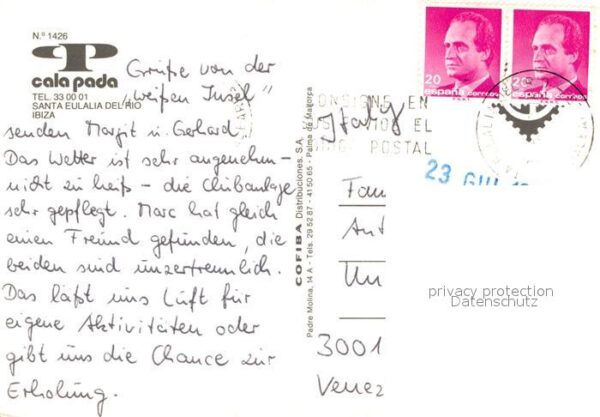 N.º 1426
cala pada
TEL. 33 00 01
SANTA EULALIA DEL RIO
IBIZA
Grüße von der
"weißen Insel"
senden Margit u. Gerhard.
Das Wetter ist sehr angenehm -
nicht zu heiß - die Clubanlage
sehr gepflegt. Marc hat gleich
einen Freund gefunden, die
beiden sind unzertrennlich.
Das läßt uns Luft für
eigene Aktivitäten oder
gibt uns die Chance zur
Erholung.
COFIBA Distribuciones, S.A.
Padre Molina, 14 A - Tels. 29 52 87 - 41 50 65 - Palma de Mallorca
20
españa correos
20
españa correos
ONSIGNE EN
EL
POSTAL
Italy
23 GIU
Fam
Ant
Un
3001
Venez
privacy protection
Datenschutz